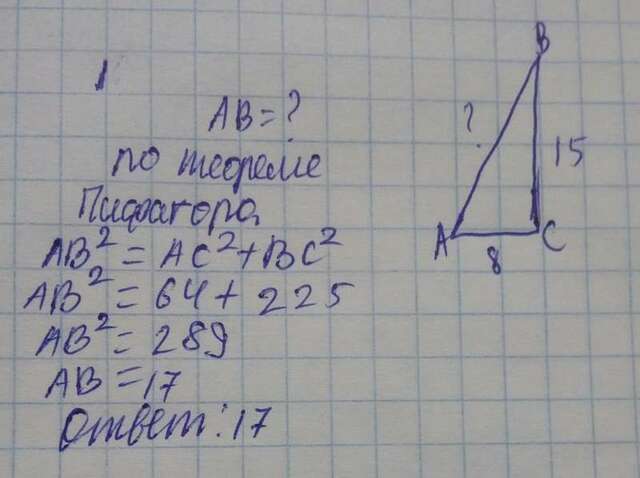 1
AB = ?
по теореме
Пифагора
AB² = AC² + BC²
AB² = 64 + 225
AB² = 289
AB = 17
Ответ: 17
B
?
15
A
8
C